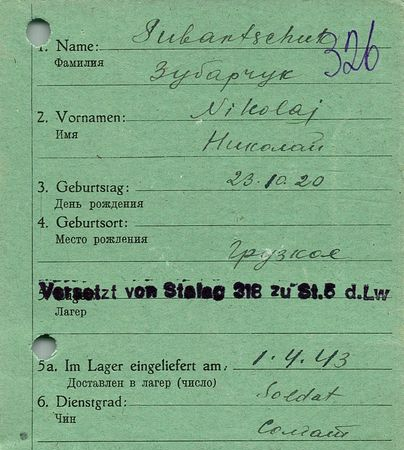 1. Name: Subartschuk
326
Фамилия Зубарчук
2. Vornamen: Nikolaj
Имя Николай
3. Geburtstag: 23.10.20
День рождения
4. Geburtsort:
Место рождения Грузкое
Versetzt von Stalag 318 zu St.6 d.Lw
Лагер
5a. Im Lager eingeliefert am: 1.4.43
Доставлен в лагер (число)
6. Dienstgrad: Soldat
Чин Солдат